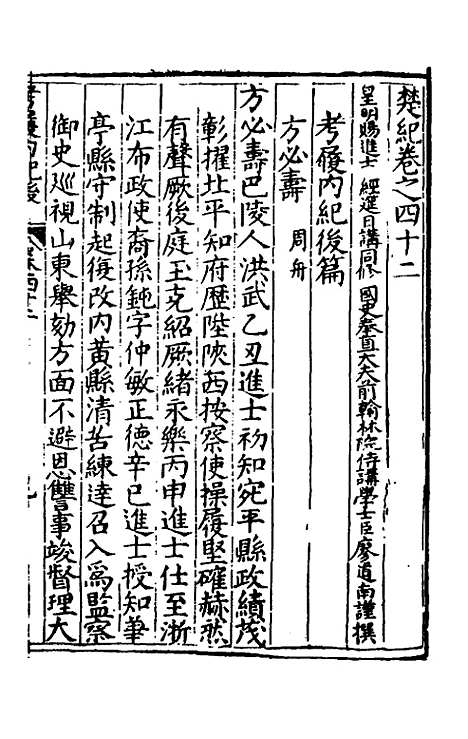 楚紀卷之四十二
皇明賜進士 經筵日講同修 國史奉直大夫前翰林院侍講學士臣廖道南謹撰
考履內紀後篇
方必壽 周舟
方必壽巴陵人洪武乙丑進士初知宛平縣政績茂
彰擢北平知府歷陞陝西按察使操履堅確赫然
有聲厥後庭玉克紹厥緒永樂丙申進士仕至浙
江布政使裔孫鈍字仲敏正德辛巳進士授知華
亭縣守制起復改內黃縣清苦練達召入為監察
御史巡視山東舉劾方面不避恩讐事竣督理大